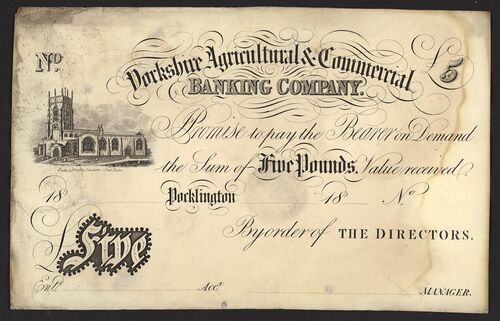 No.
Yorkshire Agricultural & Commercial
£5
BANKING COMPANY.
Promise to pay the Bearer on Demand
the Sum of Five Pounds, Value received
18 Pocklington 18 No.
By order of THE DIRECTORS.
£Five
Entd. Acct. MANAGER.